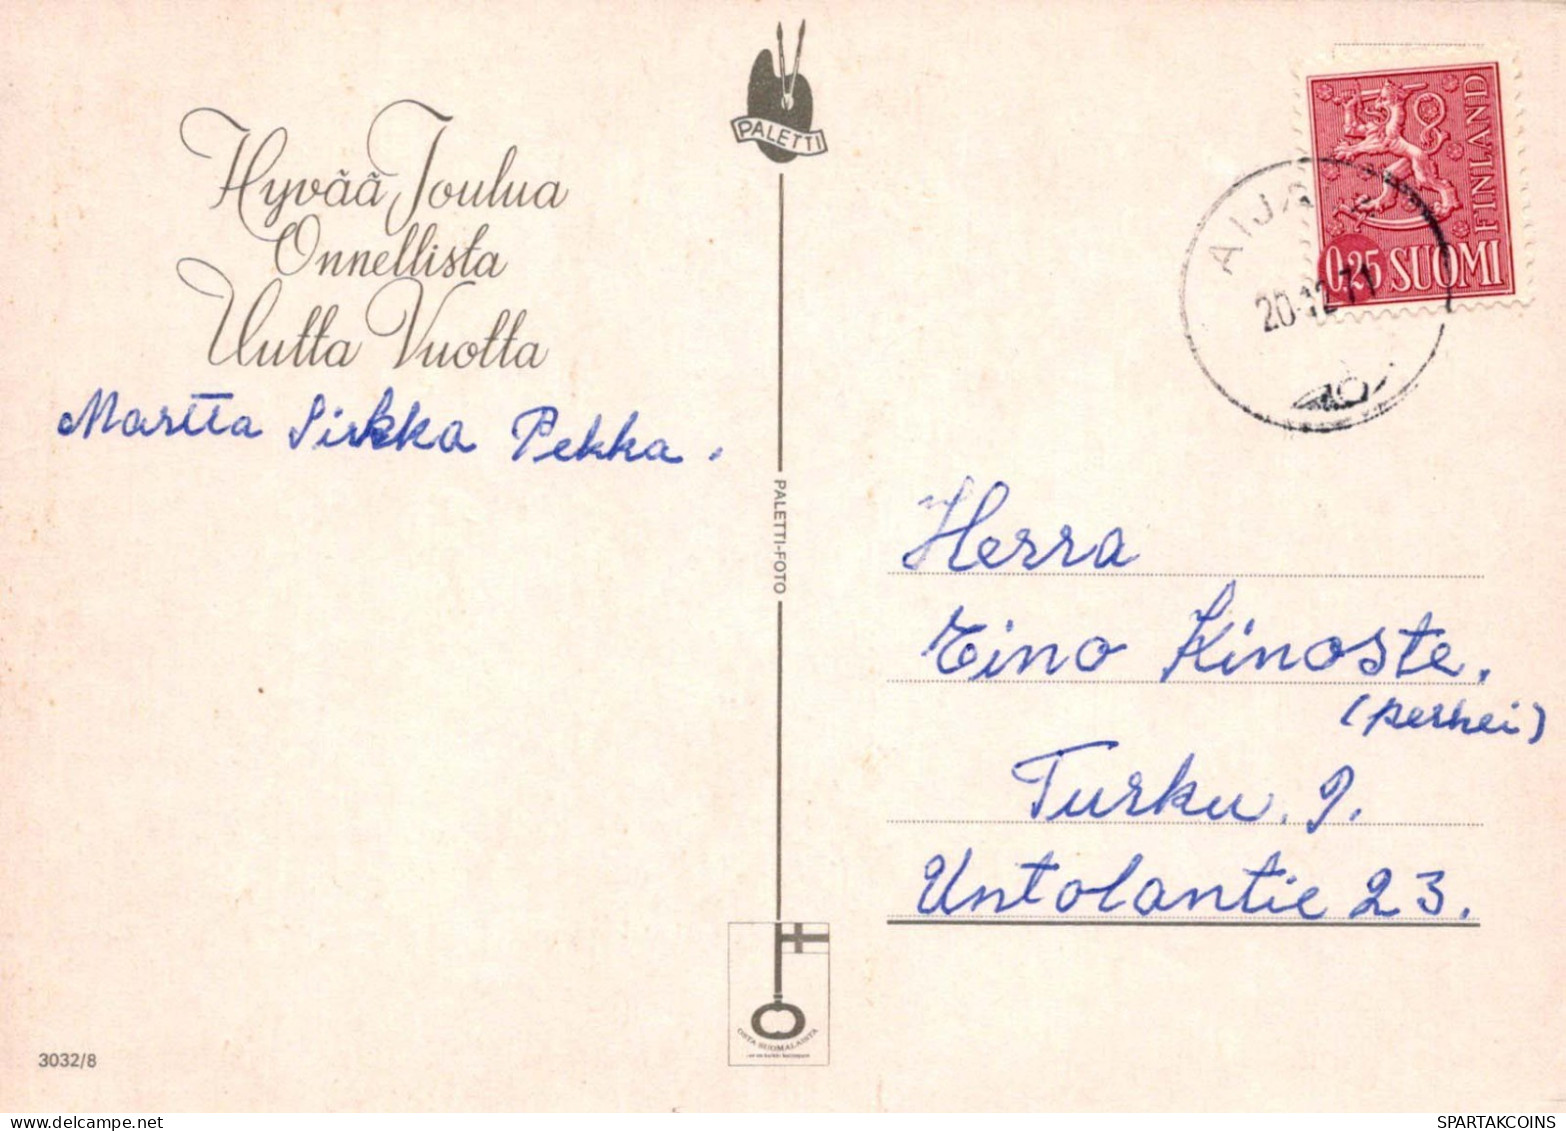 PALETTI
Hyvää Joulua
Onnellista
Uutta Vuotta
Martta Sirkka Pekka.
PALETTI-FOTO
FINLAND
0,25 SUOMI
20.12.71
Herra
Eino Kinoste.
(perhei)
Turku. 9.
Untolantie 23.
OSTA SUOMALAISTA
3032/8
SPARTAKCOINS